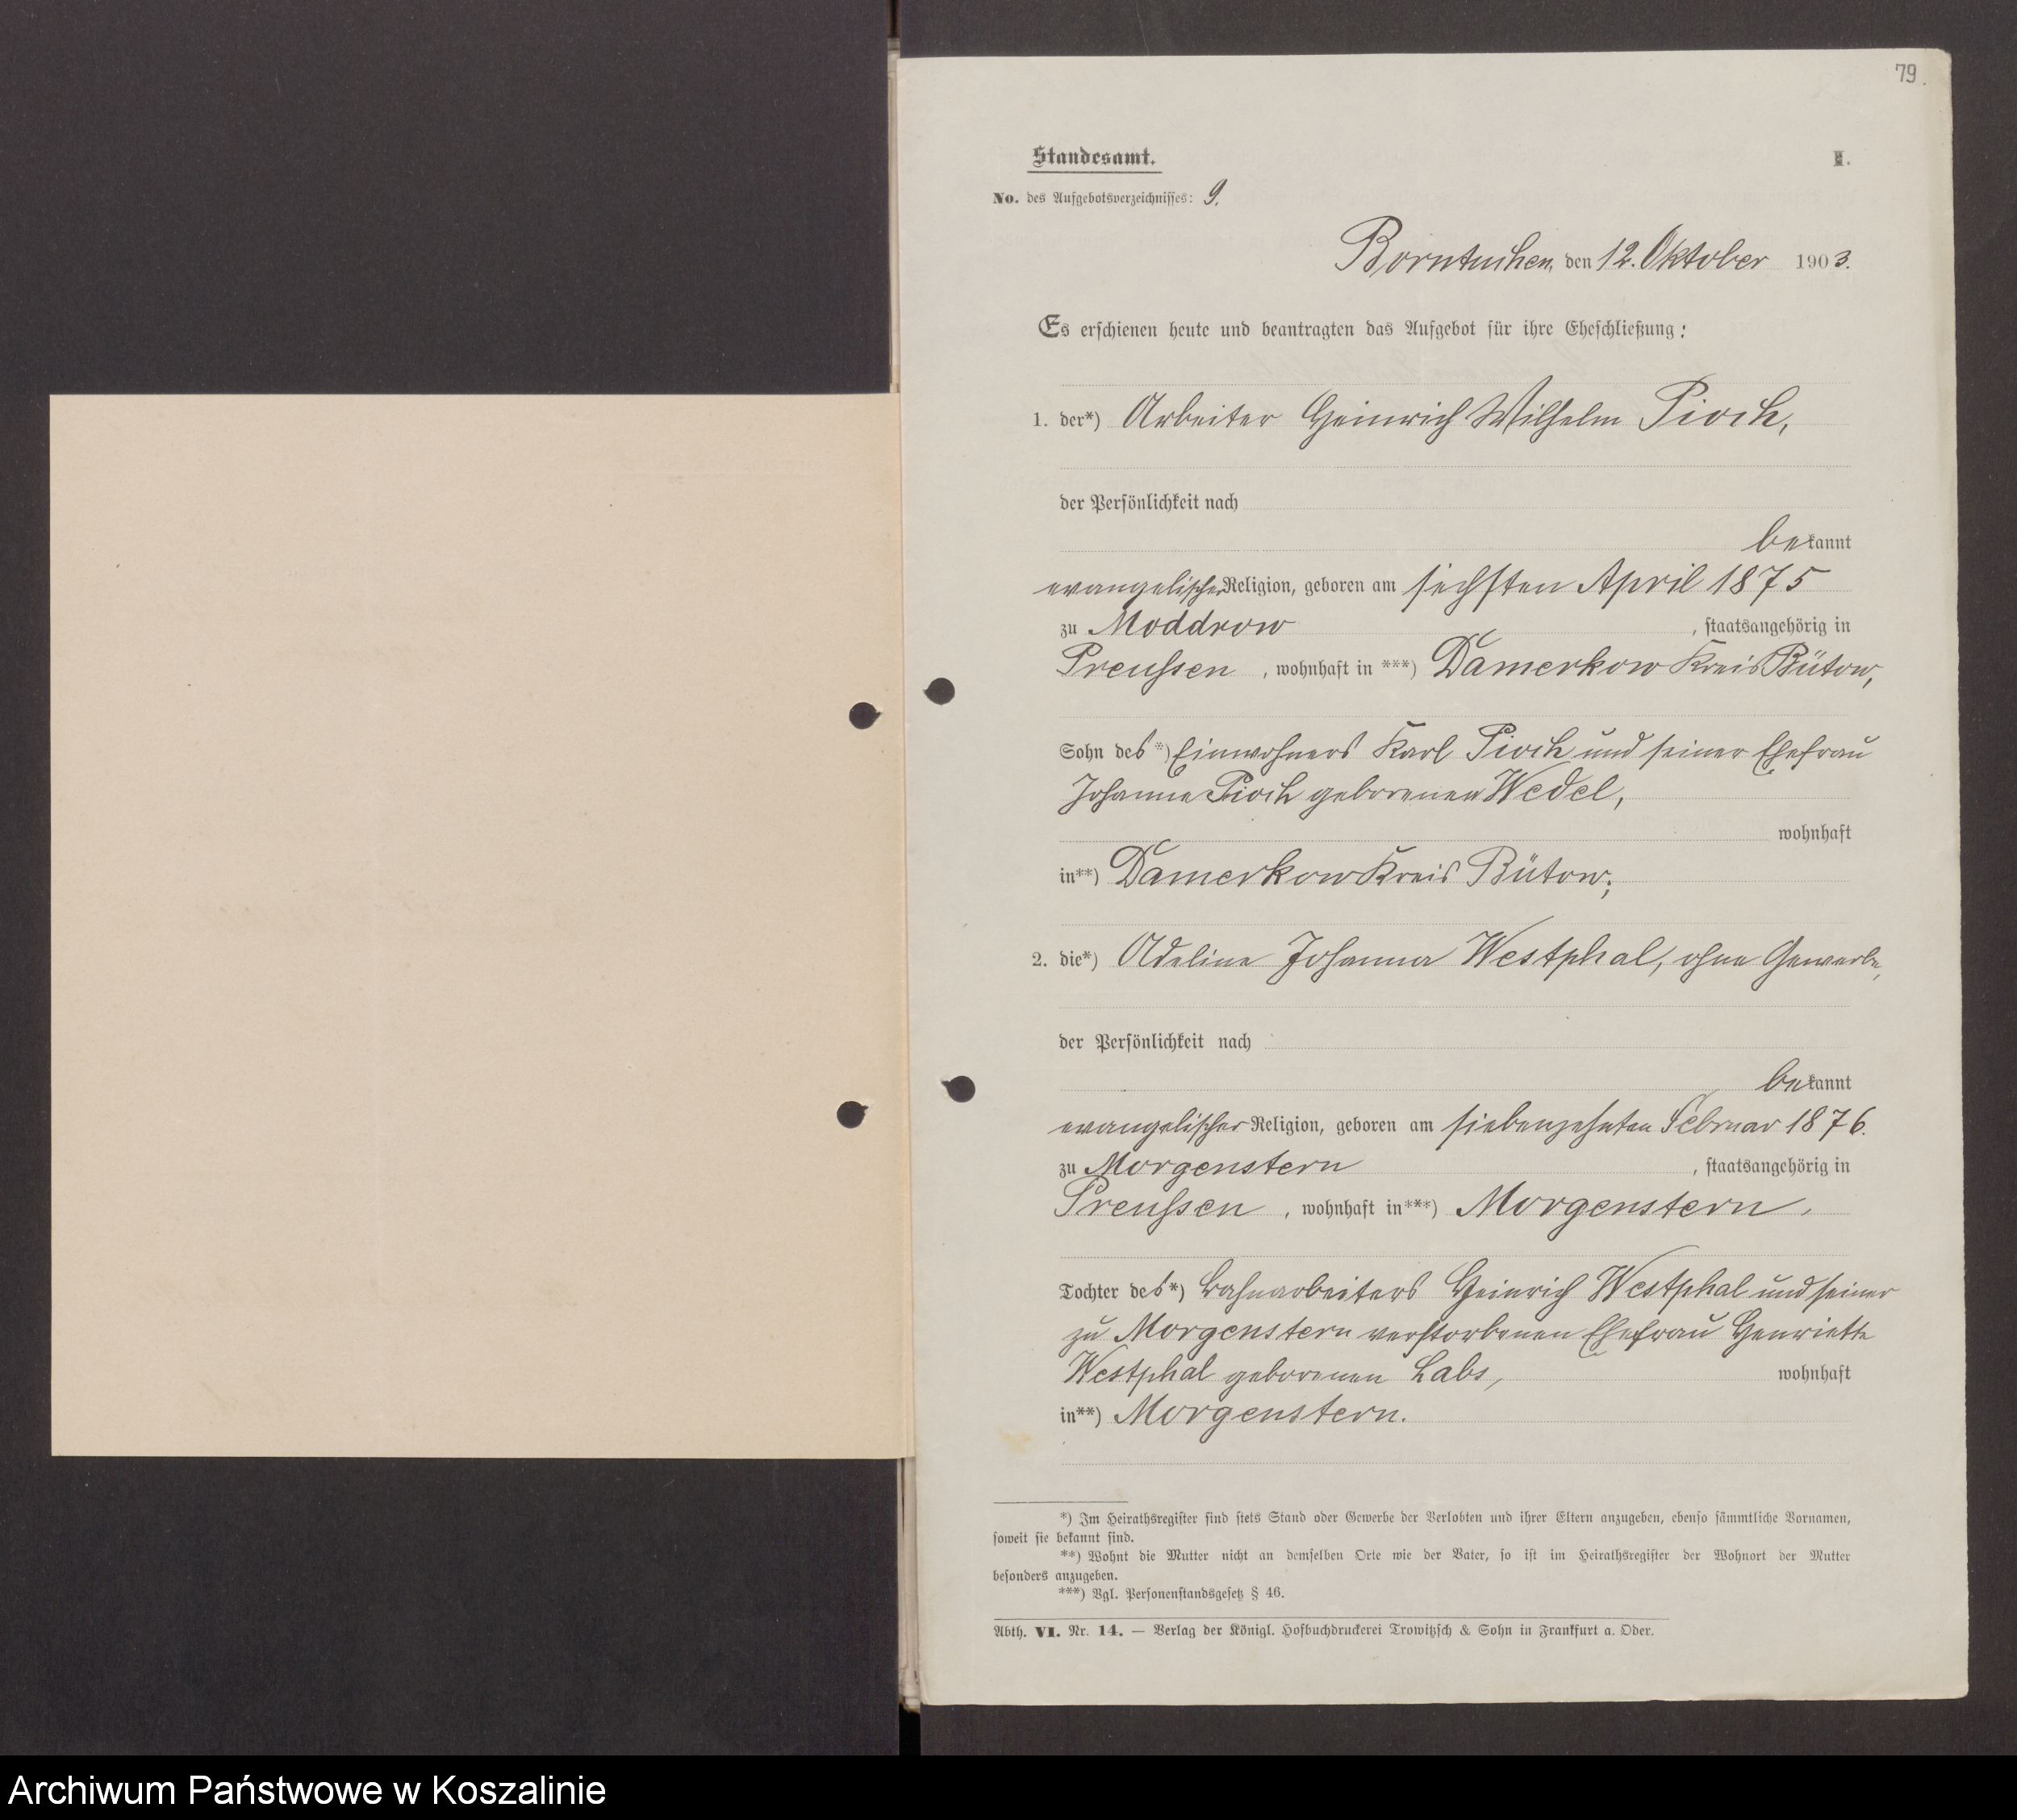 79.
Standesamt.
I.
No. des Aufgebotsverzeichnisses: 9.
Borntuchen, den 12. Oktober 1903.
Es erschienen heute und beantragten das Aufgebot für ihre Eheschließung:
1. der*) Arbeiter Heinrich Wilhelm Pioch,
der Persönlichkeit nach
bekannt
evangelischer Religion, geboren am sechsten April 1875
zu Moddrow , staatsangehörig in
Preußen , wohnhaft in ***) Damerkow Kreis Bütow,
Sohn des *) Einwohners Karl Pioch und seiner Ehefrau
Johanne Pioch geborenen Wedel,
wohnhaft
in**) Damerkow Kreis Bütow;
2. die*) Adeline Johanna Westphal, ohne Gewerbe,
der Persönlichkeit nach
bekannt
evangelischer Religion, geboren am siebenzehnten Februar 1876.
zu Morgenstern , staatsangehörig in
Preußen , wohnhaft in***) Morgenstern,
Tochter des*) Bahnarbeiters Heinrich Westphal und seiner
zu Morgenstern verstorbenen Ehefrau Henriette
Westphal geborenen Labs, wohnhaft
in**) Morgenstern.
*) Im Heirathsregister sind stets Stand oder Gewerbe der Verlobten und ihrer Eltern anzugeben, ebenso sämmtliche Vornamen,
soweit sie bekannt sind.
**) Wohnt die Mutter nicht an demselben Orte wie der Vater, so ist im Heirathsregister der Wohnort der Mutter
besonders anzugeben.
***) Vgl. Personenstandsgesetz § 46.
Abth. VI. Nr. 14. — Verlag der Königl. Hofbuchdruckerei Trowitzsch & Sohn in Frankfurt a. Oder.
Archiwum Państwowe w Koszalinie